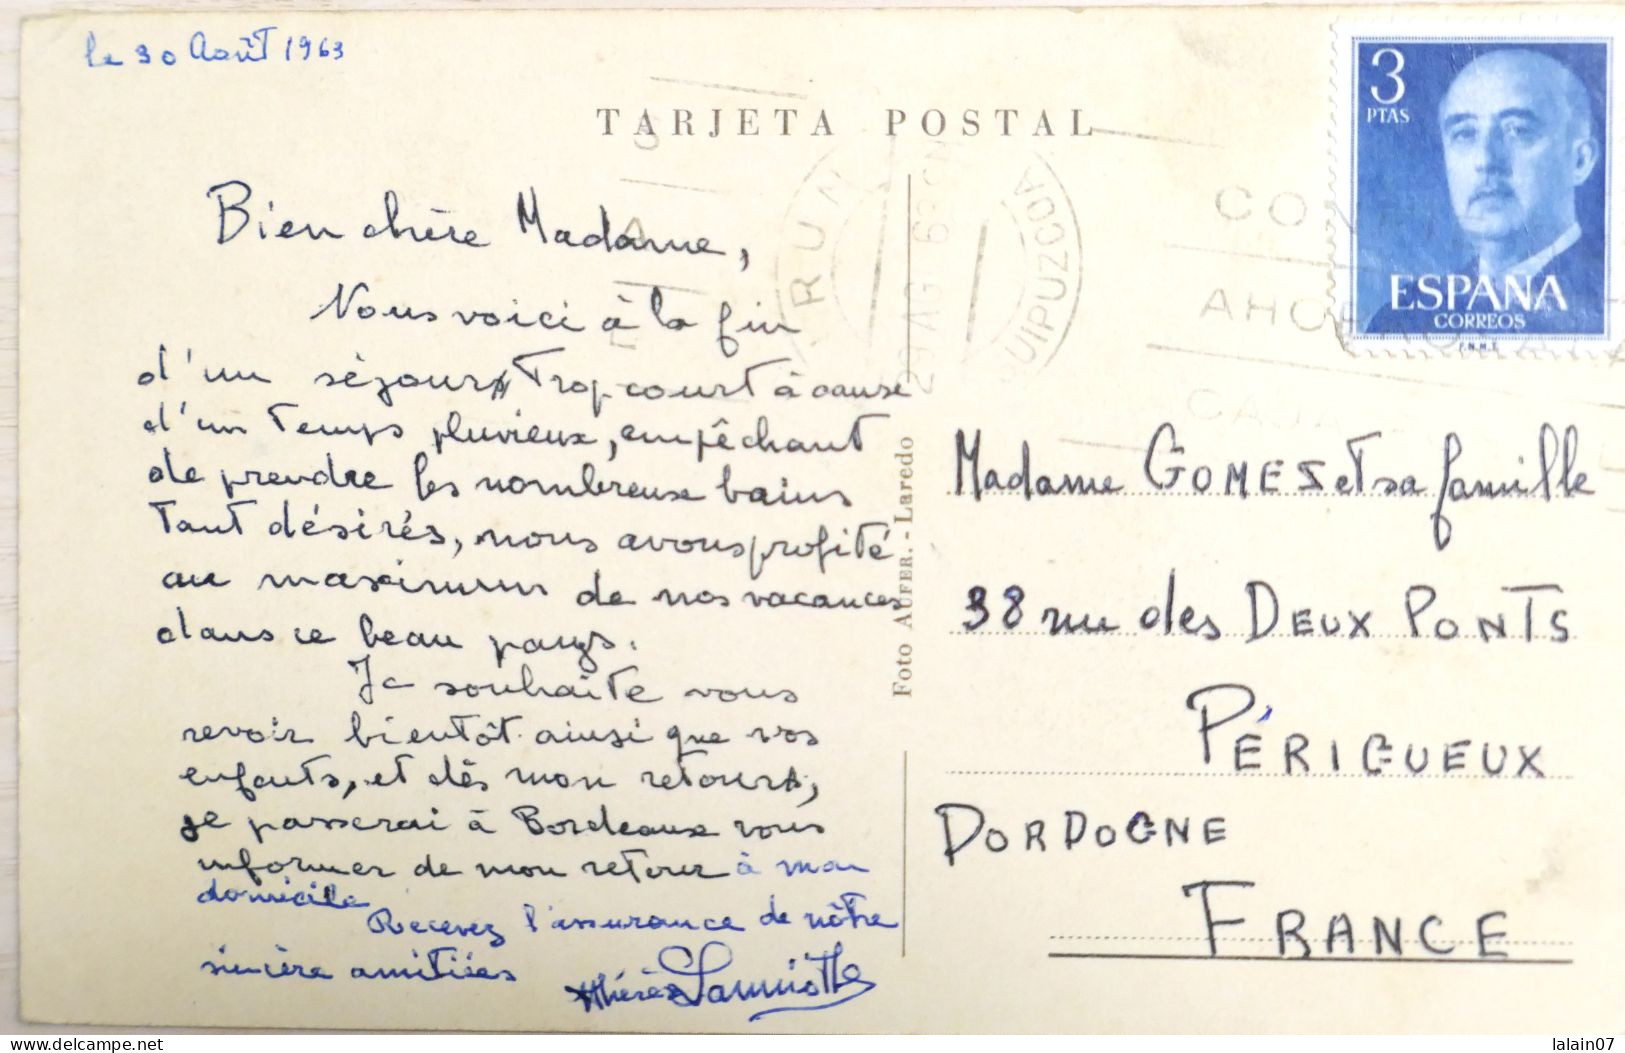 le 30 Août 1963
TARJETA POSTAL
3
PTAS
ESPAÑA
CORREOS
F.N.M.T.
IRUN
29 AG 63
GUIPUZCOA
Bien chère Madame,
Nous voici à la fin
d'un séjour trop court à cause
d'un temps pluvieux, empêchant
de prendre les nombreux bains
tant désirés, nous avons profité
au maximum de nos vacances
dans ce beau pays.
Je souhaite vous
revoir bientôt ainsi que vos
enfants, et dès mon retour,
je passerai à Bordeaux vous
informer de mon retour à mon
domicile
Recevez l'assurance de nôtre
sincère amitiées
Thérèse
Foto AUFER.-Laredo
Madame GOMES et sa famille
38 rue des DEUX PONTS
PÉRIGUEUX
DORDOGNE
FRANCE
delcampe.net
lalain07